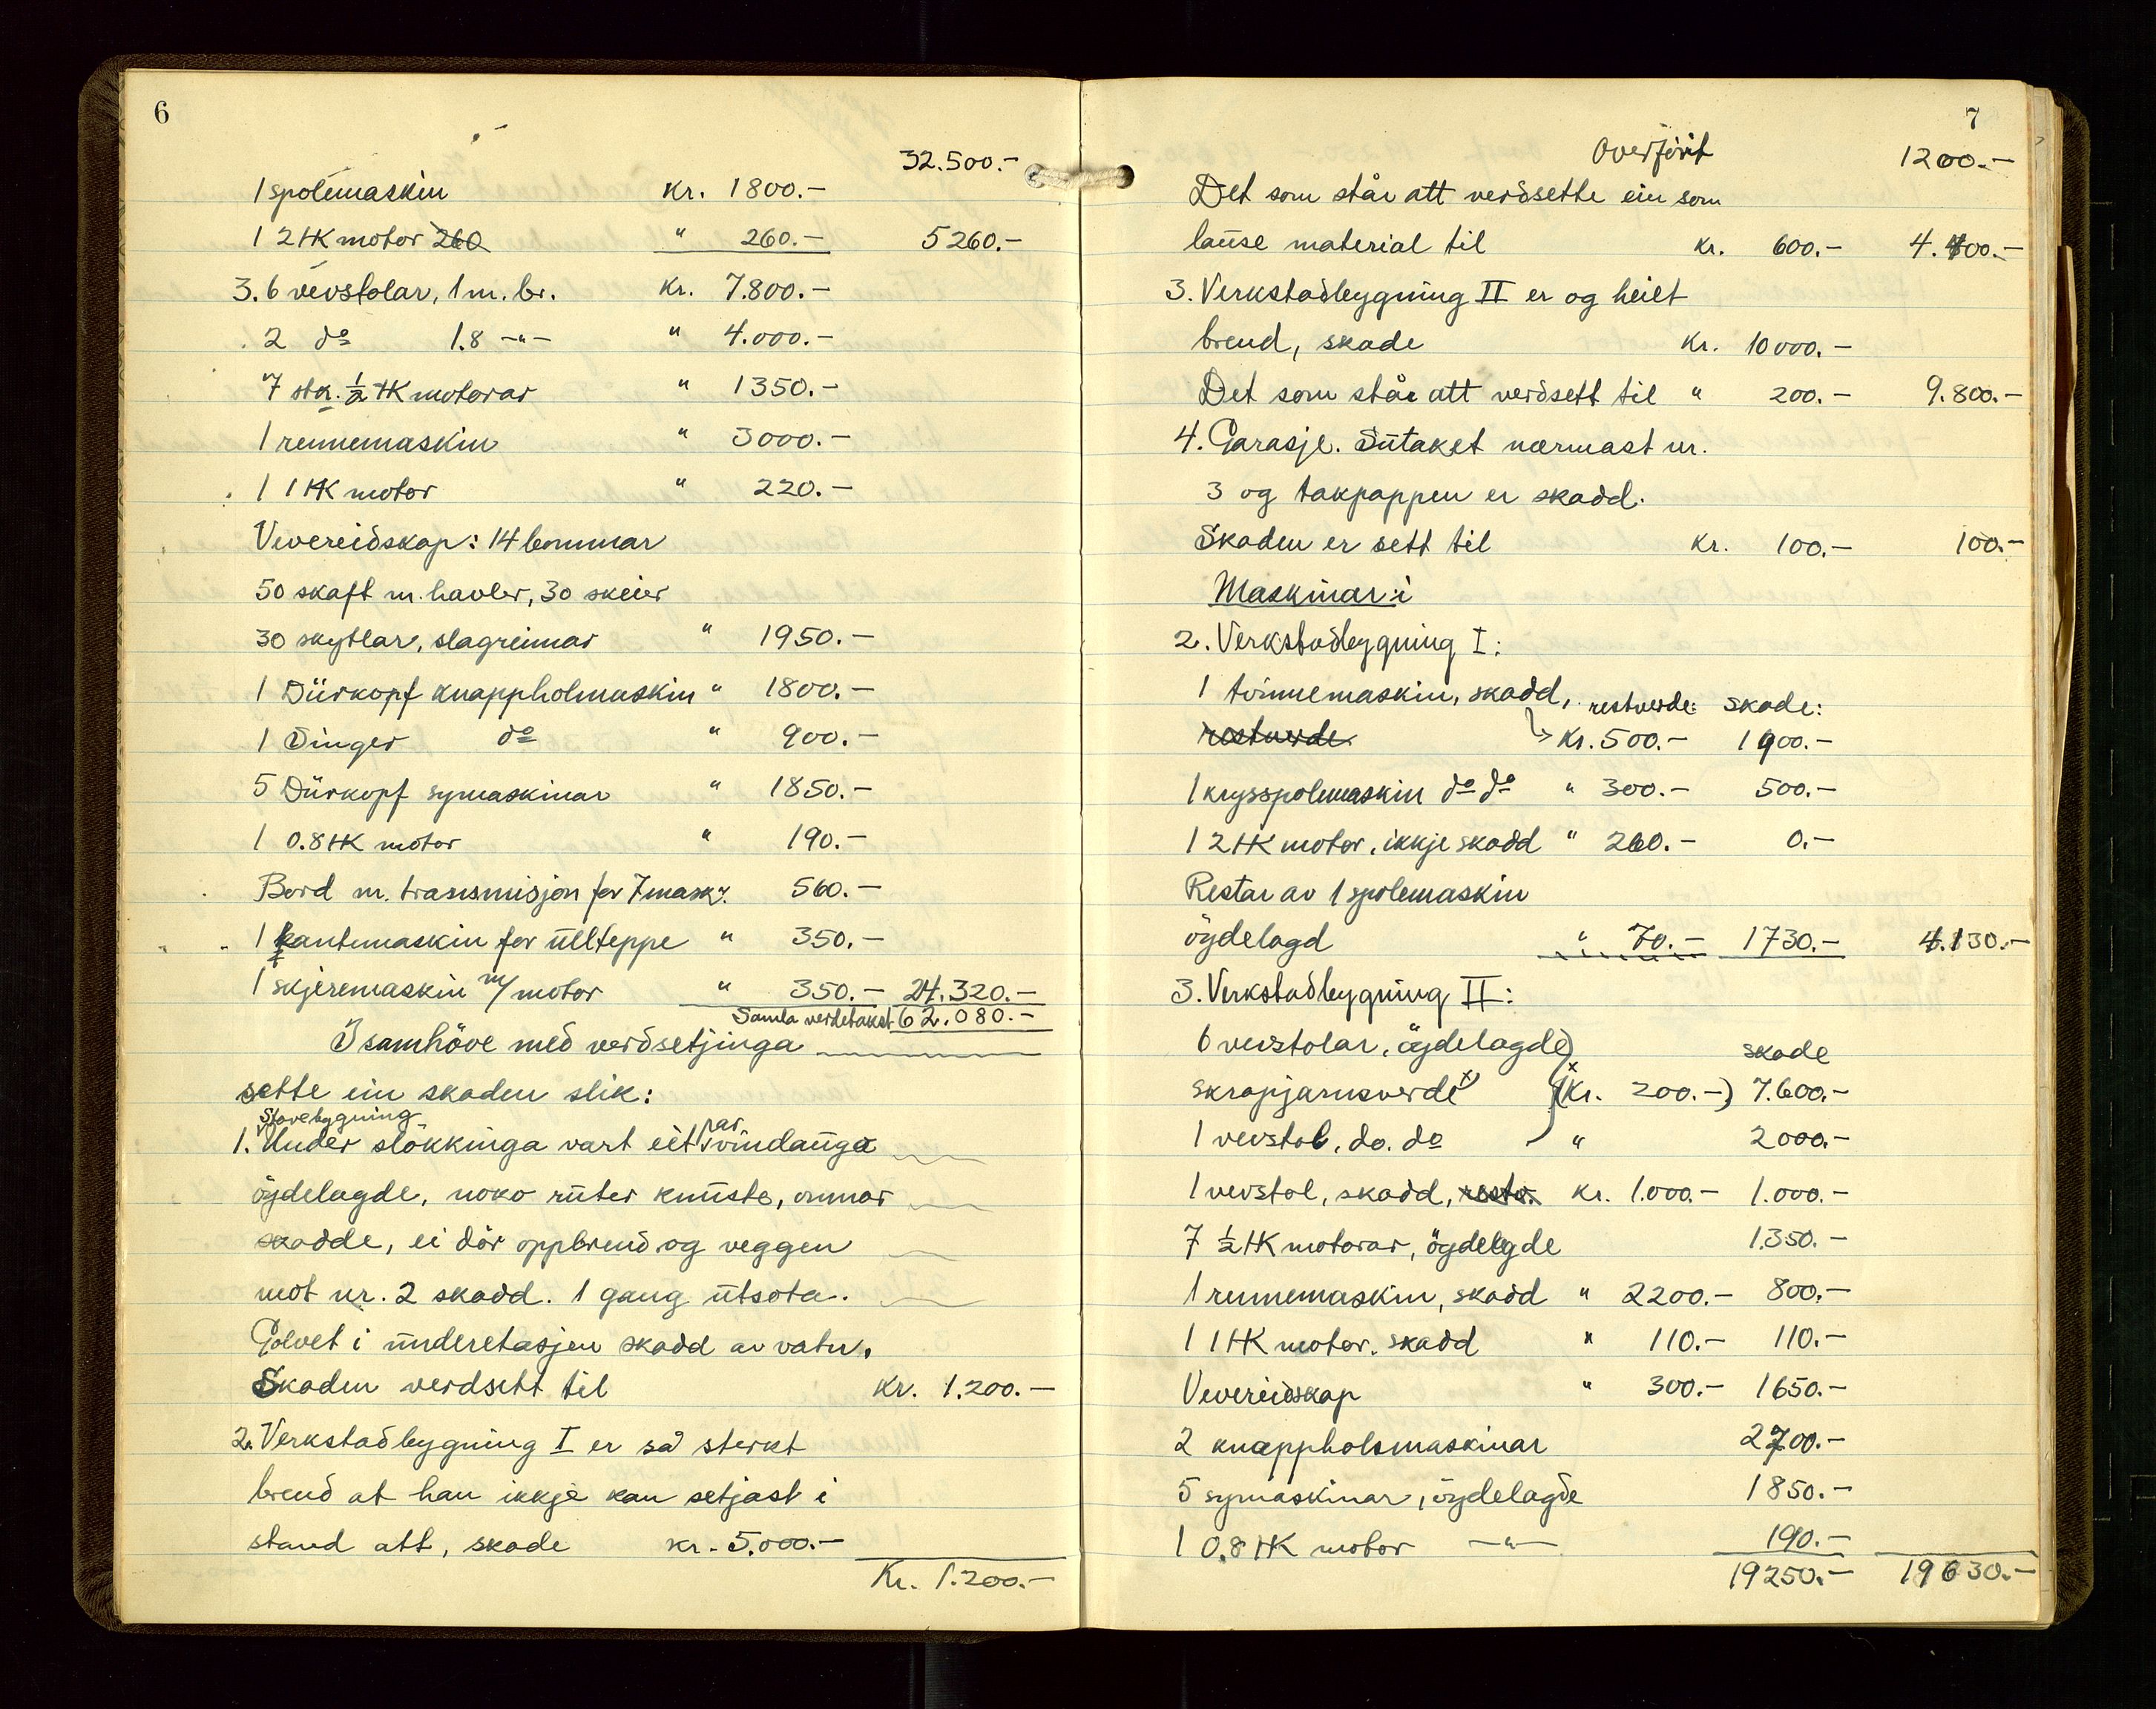 6
32.500.-
1 spolemaskin kr. 1800.-
1 2 HK motor 260 " 260.- 5260.-
3. 6 vevstolar, 1 m. br. kr. 7.800.-
2 do 1.8 -"- " 4.000.-
7 stk. ½ HK motorar " 1350.-
1 rennemaskin " 3000.-
1 1 HK motor " 220.-
Vevereidskap: 14 bommar
50 skaft m. havler, 30 skeier
30 skytlar, slagreimar " 1950.-
1 Dürkopf knappholmaskin " 1800.-
1 Singer do " 900.-
5 Dürkopf symaskinar " 1850.-
1 0.8 HK motor " 190.-
Bord m. transmisjon for 7 mask. " 560.-
1 kantemaskin for ullteppe " 350.-
1 skjeremaskin m/motor " 350.- 24.320.-
Samla verdetakst 62.080.-
I samhöve med verdsetjinga
sette ein skaden slik:
Stovebygning
1. Under slökkinga vart eit par vindauga
öydelagde, noko ruter knuste, omnar
skadde, ei dör oppbrend og veggen
mot nr. 2 skadd. 1 gang utsota.
Golvet i underetasjen skadd av vatn.
Skaden verdsett til kr. 1.200.-
2. Verkstadbygning I er så sterkt
brend at han ikkje kan setjast i
stand att, skade kr. 5.000.-
Kr. 1.200.-
7
Overfört 1200.-
Det som står att verdsette ein som
lause material til kr. 600.- 4.400.-
3. Verkstadbygning II er og heilt
brend, skade kr. 10000.-
Det som står att verdsett til " 200.- 9.800.-
4. Garasje. Sutaket nærmast nr.
3 og takpappen er skadd.
Skaden er sett til kr. 100.- 100.-
Maskinar i
2. Verkstadbygning I:
1 tvinnemaskin, skadd, restverde: skade:
restverde kr. 500.- 1900.-
1 krysspolemaskin do do " 300.- 500.-
1 2 HK motor, ikkje skadd " 260.- 0.-
Restar av 1 spolemaskin
öydelagd " 70.- 1730.- 4.130.-
3. Verkstadbygning II:
6 vevstolar, öydelagde) skade
skrapjarnsverde x) (x kr. 200.-) 7.600.-
1 vevstol, do. do " 2000.-
1 vevstol, skadd, restv. kr. 1.000.- 1.000.-
7 ½ HK motorar, öydelegde 1.350.-
1 rennemaskin, skadd " 2200.- 800.-
1 1 HK motor, skadd " 110.- 110.-
Vevereidskap " 300.- 1650.-
2 knappholsmaskinar 2700.-
5 symaskinar, öydelagde 1850.-
1 0.8 HK motor -"- 190.-
19250.- 19630.-